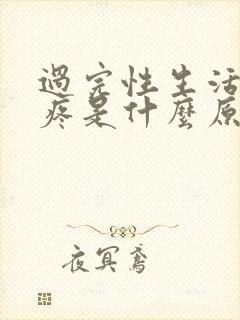 過完性生活
疼是什麼原
夜冥鳶